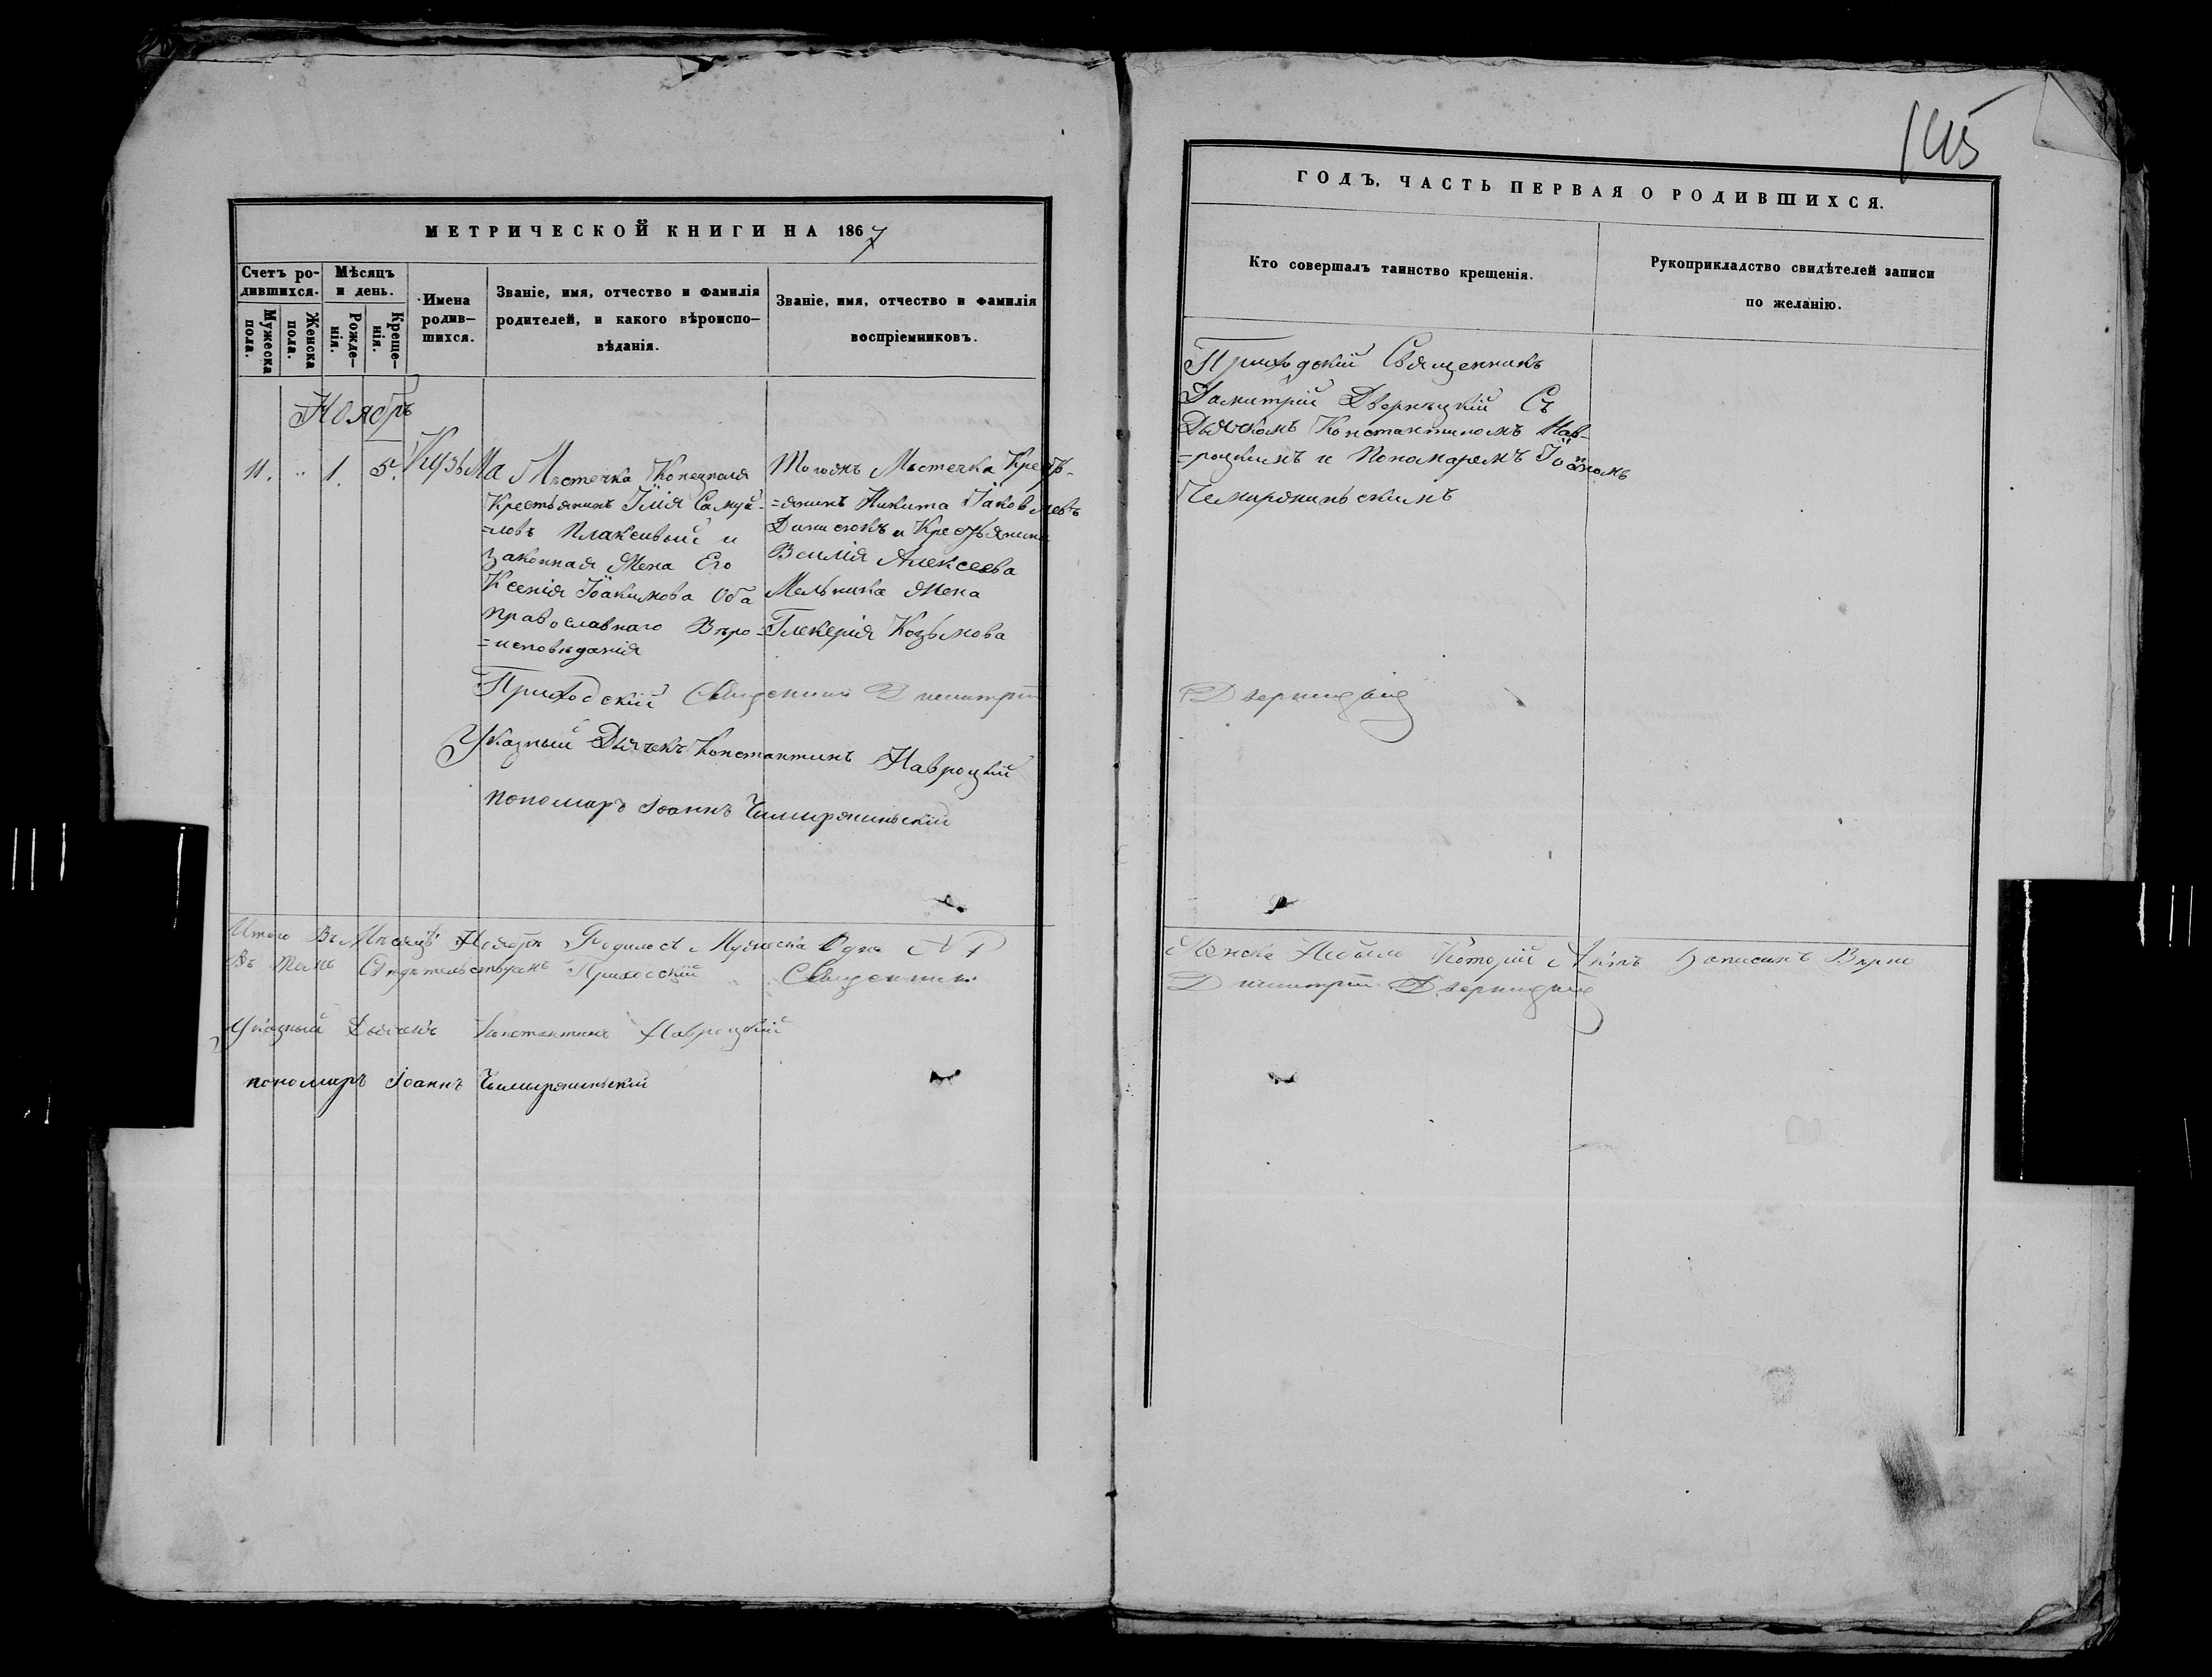 МЕТРИЧЕСКОЙ КНИГИ НА 1867
Счетъ ро-
дившихся.
Мѣсяцъ
и день.
Мужеска
пола.
Женска
пола.
Рожде-
нія.
Креще-
нія.
Имена
родив-
шихся.
Званіе, имя, отчество и фамилія
родителей, и какого вѣроиспо-
вѣданія.
Званіе, имя, отчество и фамилія
воспріемниковъ.
Ноябръ
11. " 1. 5. Кузьма
Мѣстечка Конецполя
Крестьянинъ Імія Самуй-
=ловъ Плаксивый и
Законная Жена Его
Ксенія Іоакимова Оба
Православнаго Вѣро-
=исповѣданія
Тогожъ Мѣстечка Крестъ-
=янинъ Никита Іаковлевъ
Динисюкъ и Крестьянина
Василія Алексеева
Мельника Жена
Гликерія Козьмова
Приходскій Священникъ Димитрій
Указный Дьячекъ Константинъ Навроцкій
пономаръ Іоаннъ Чемиренинскій
Итого Въ Мѣсяцѣ Ноябрѣ Родилось Мужеска Одна № 1
Въ Томъ Свидѣтельствуемъ Приходскій Священникъ
Указный Дьячекъ Константинъ Навроцкій
пономаръ Іоаннъ Чемиренинскій
145
ГОДЪ, ЧАСТЬ ПЕРВАЯ О РОДИВШИХСЯ.
Кто совершалъ таинство крещенія.
Рукоприкладство свидѣтелей записи
по желанію.
Приходскій Священникъ
Дамитрій Дверницкій Съ
Дьячкомъ Константиномъ Нав-
=роцкимъ и Пономаремъ Іоанномъ
Чемиренинскимъ
Дверницкій
Женска Небыло Который Актъ Записанъ Вѣрно
Димитрій Дверницкій